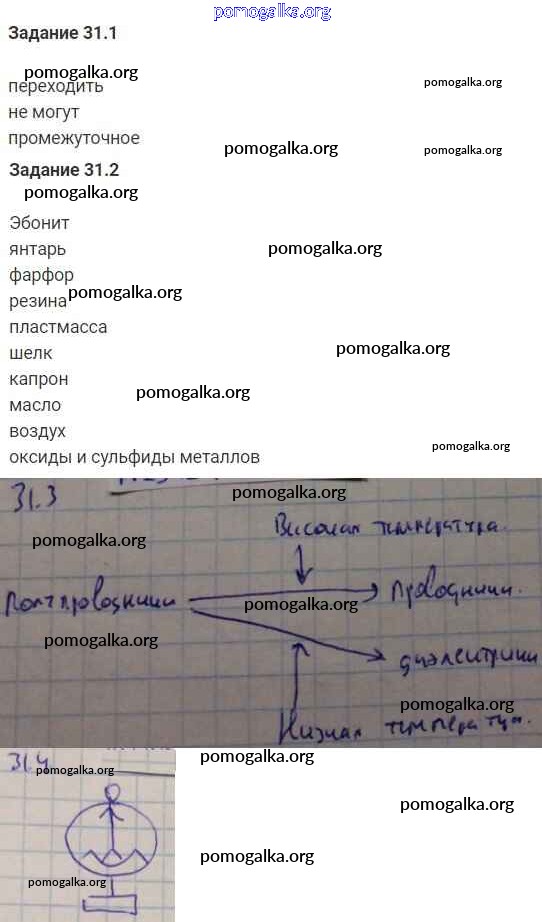 pomogalka.org
Задание 31.1
pomogalka.org
переходить
pomogalka.org
не могут
промежуточное
pomogalka.org
pomogalka.org
Задание 31.2
pomogalka.org
Эбонит
янтарь
pomogalka.org
фарфор
резина
pomogalka.org
пластмасса
шелк
pomogalka.org
капрон
pomogalka.org
масло
воздух
pomogalka.org
оксиды и сульфиды металлов
31.3
pomogalka.org
Высокая температура.
pomogalka.org
Полупроводники
проводники.
pomogalka.org
pomogalka.org
диэлектрики
pomogalka.org
Низкая температура.
31.4
pomogalka.org
pomogalka.org
pomogalka.org
pomogalka.org
pomogalka.org